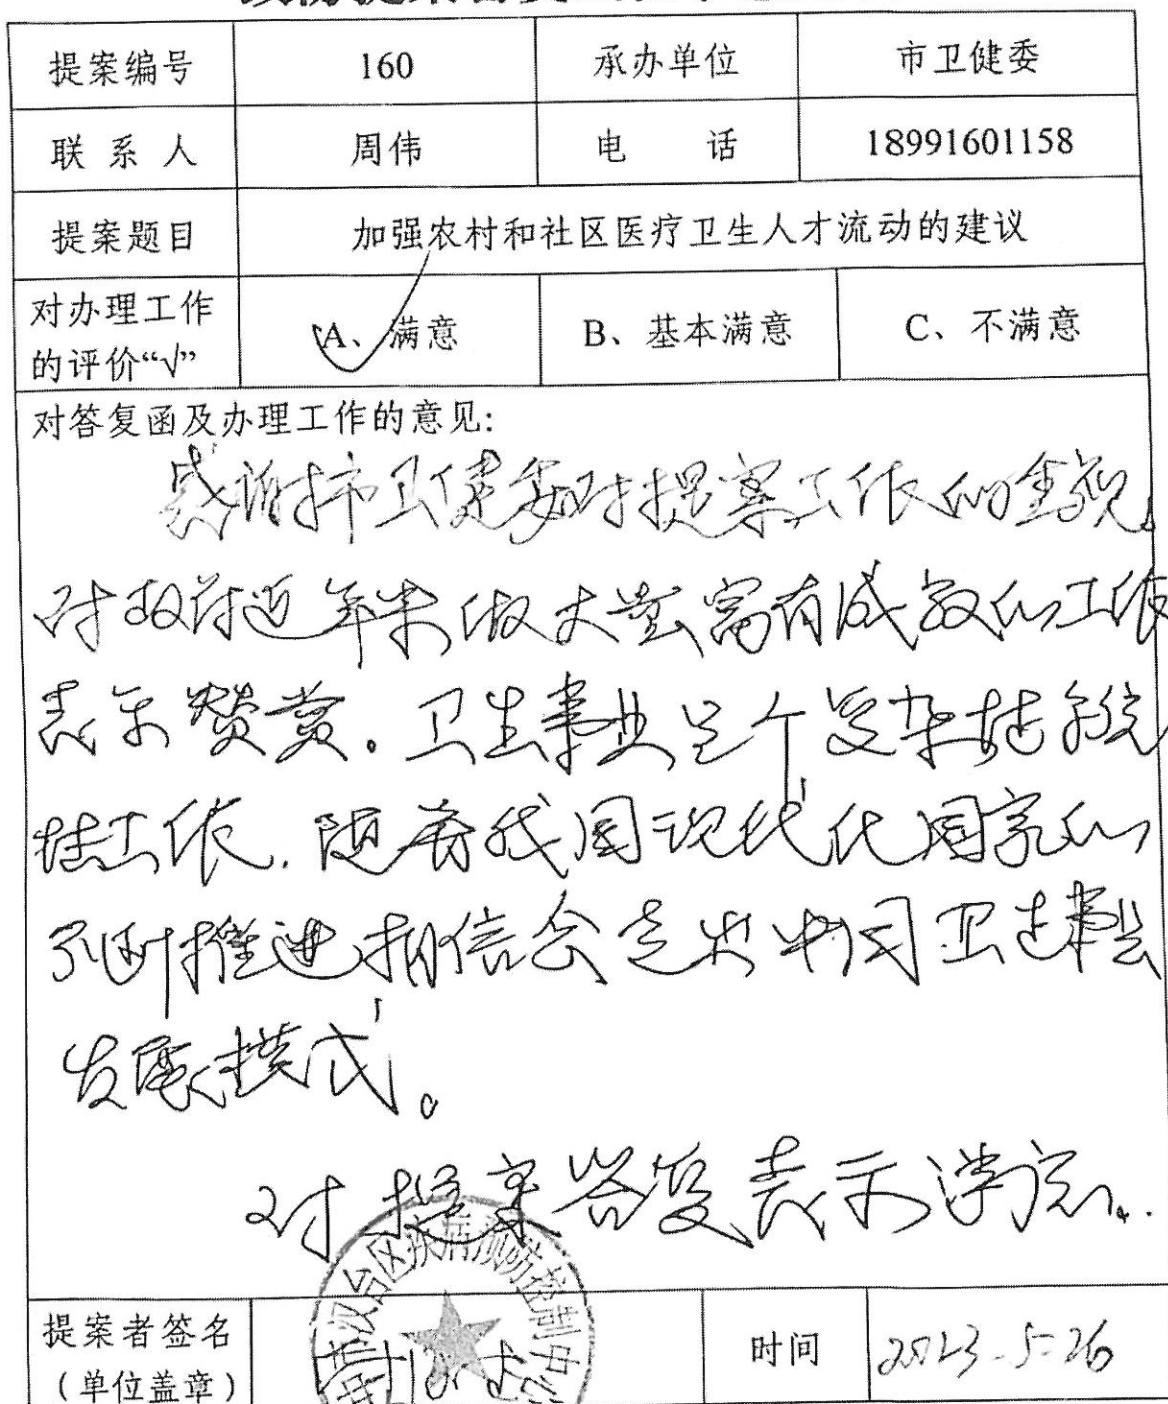 提案编号 160 承办单位 市卫健委
联系人 周伟 电话 18991601158
提案题目 加强农村和社区医疗卫生人才流动的建议
对办理工作的评价“√” A、满意 B、基本满意 C、不满意
对答复函及办理工作的意见:
感谢市卫健委对提案工作的重视。
对政府近年来做大量富有成效的工作
表示赞赏。卫生事业是个复杂性系统
性工作.随着我国现代化国家的
不断推进相信会走出中国卫生事业
发展模式。
对提案答复表示满意.
汉台区疾病预防控制中心
提案者签名 时间 2023.5-26
(单位盖章)